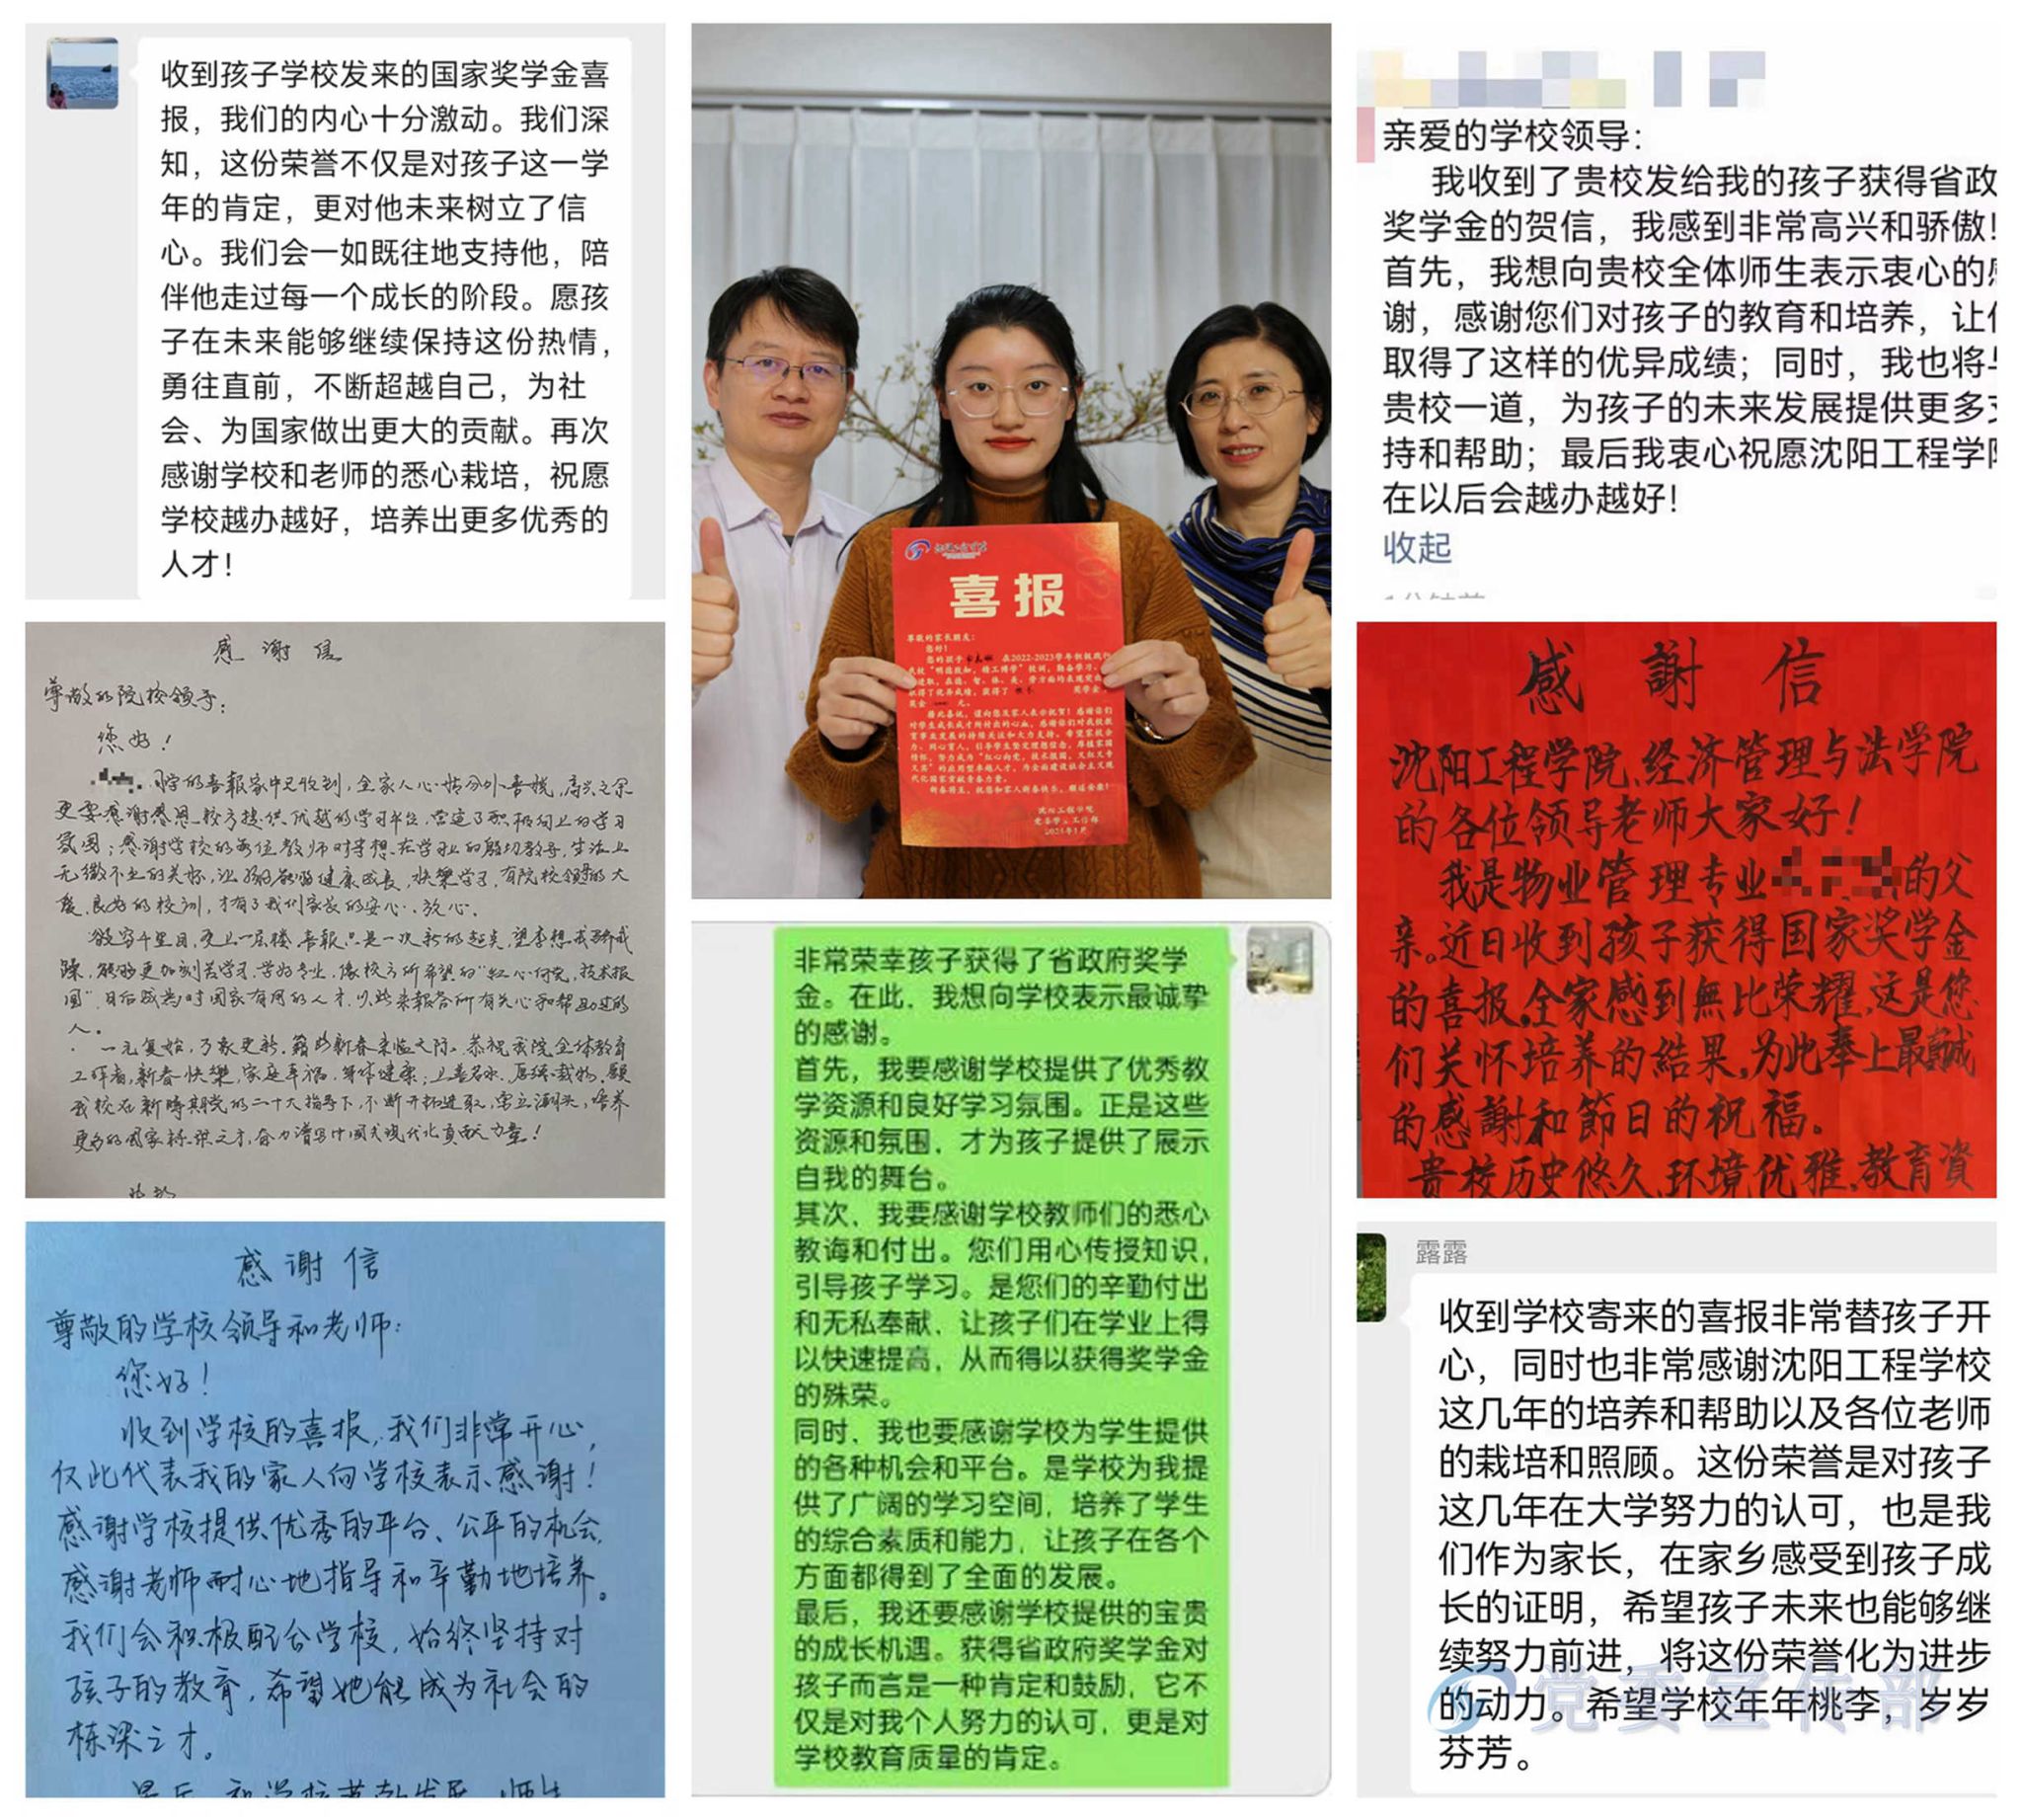 收到孩子学校发来的国家奖学金喜
报，我们的内心十分激动。我们深
知，这份荣誉不仅是对孩子这一学
年的肯定，更对他未来树立了信
心。我们会一如既往地支持他，陪
伴他走过每一个成长的阶段。愿孩
子在未来能够继续保持这份热情，
勇往直前，不断超越自己，为社
会、为国家做出更大的贡献。再次
感谢学校和老师的悉心栽培，祝愿
学校越办越好，培养出更多优秀的
人才！
感谢信
尊敬的院校领导：
您好！
同学的喜报家中已收到，全家人心情分外喜悦，高兴之余
更要感谢感恩校方提供优越的学习平台，营造了积极向上的学习
氛围；感谢学校的每位教师对李想在学业的殷切教导，生活上
无微不至的关怀，让孩子能够健康成长，快樂学习，有院校领导的大
爱、良好的校训，才有了我们家长的安心、放心。
欲穷千里目，更上一层楼，喜報只是一次新的起点，望李想戒骄戒
躁，能够更加刻苦学习，学好专业，像校方所希望的“红心向党，技术报
国”，日后成为对国家有用的人才，以此来報答所有关心和帮助过的
人。
一元复始，万象更新，籍此新春来临之际，恭祝我院全体教育
工作者，新春快樂，家庭幸福，身体健康；上善若水，厚德载物，愿
我校在新時期党的二十大指导下，不断开拓进取，勇立潮头，培养
更多的国家栋梁之才，奋力谱写中国式现代化贡献力量！
感谢信
尊敬的学校领导和老师：
您好！
收到学校的喜报，我们非常开心，
仅此代表我的家人向学校表示感谢！
感谢学校提供优秀的平台、公平的机会，
感谢老师耐心地指导和辛勤地培养。
我们会积极配合学校，始终坚持对
孩子的教育，希望她能成为社会的
栋梁之才。
喜报
尊敬的家长朋友：
您好！
您的孩子 在2022-2023学年积极践行
我校“明德致知，精工博学”校训，勤奋学习，
进取，在德、智、体、美、劳方面均表现突出
取得了优异成绩，获得了 奖学金
奖金 元。
借此喜讯，谨向您及家人表示祝贺！感谢你们
对学生成长成才所付出的心血，感谢你们对我校教
育事业发展的持续关注和大力支持。希望家校合
力，同心育人，引导学生坚定理想信念，厚植家国
情怀，努力成为“红心向党，技术报国，又红又专
又实”的应用型卓越人才，为全面建设社会主义现
代化国家贡献青春力量。
新春将至，祝您和家人新春快乐，顺适安康！
沈阳工程学院
党委学生工作部
2024年1月
非常荣幸孩子获得了省政府奖学
金。在此，我想向学校表示最诚挚
的感谢。
首先，我要感谢学校提供了优秀教
学资源和良好学习氛围。正是这些
资源和氛围，才为孩子提供了展示
自我的舞台。
其次，我要感谢学校教师们的悉心
教诲和付出。您们用心传授知识，
引导孩子学习。是您们的辛勤付出
和无私奉献，让孩子们在学业上得
以快速提高，从而得以获得奖学金
的殊荣。
同时，我也要感谢学校为学生提供
的各种机会和平台。是学校为我提
供了广阔的学习空间，培养了学生
的综合素质和能力，让孩子在各个
方面都得到了全面的发展。
最后，我还要感谢学校提供的宝贵
的成长机遇。获得省政府奖学金对
孩子而言是一种肯定和鼓励，它不
仅是对我个人努力的认可，更是对
学校教育质量的肯定。
亲爱的学校领导：
我收到了贵校发给我的孩子获得省政
奖学金的贺信，我感到非常高兴和骄傲！
首先，我想向贵校全体师生表示衷心的
谢，感谢您们对孩子的教育和培养，让
取得了这样的优异成绩；同时，我也将
贵校一道，为孩子的未来发展提供更多
持和帮助；最后我衷心祝愿沈阳工程学
在以后会越办越好！
收起
感謝信
沈阳工程学院、经济管理与法学院
的各位领导老师大家好！
我是物业管理专业 的父
亲。近日收到孩子获得国家奖学金
的喜报，全家感到無比荣耀，这是您
们关怀培养的结果，为此奉上最誠
的感謝和節日的祝福。
贵校历史悠久，环境优雅，教育資
露露
收到学校寄来的喜报非常替孩子开
心，同时也非常感谢沈阳工程学校
这几年的培养和帮助以及各位老师
的栽培和照顾。这份荣誉是对孩子
这几年在大学努力的认可，也是我
们作为家长，在家乡感受到孩子成
长的证明，希望孩子未来也能够继
续努力前进，将这份荣誉化为进步
的动力。希望学校年年桃李，岁岁
芬芳。
党委宣传部